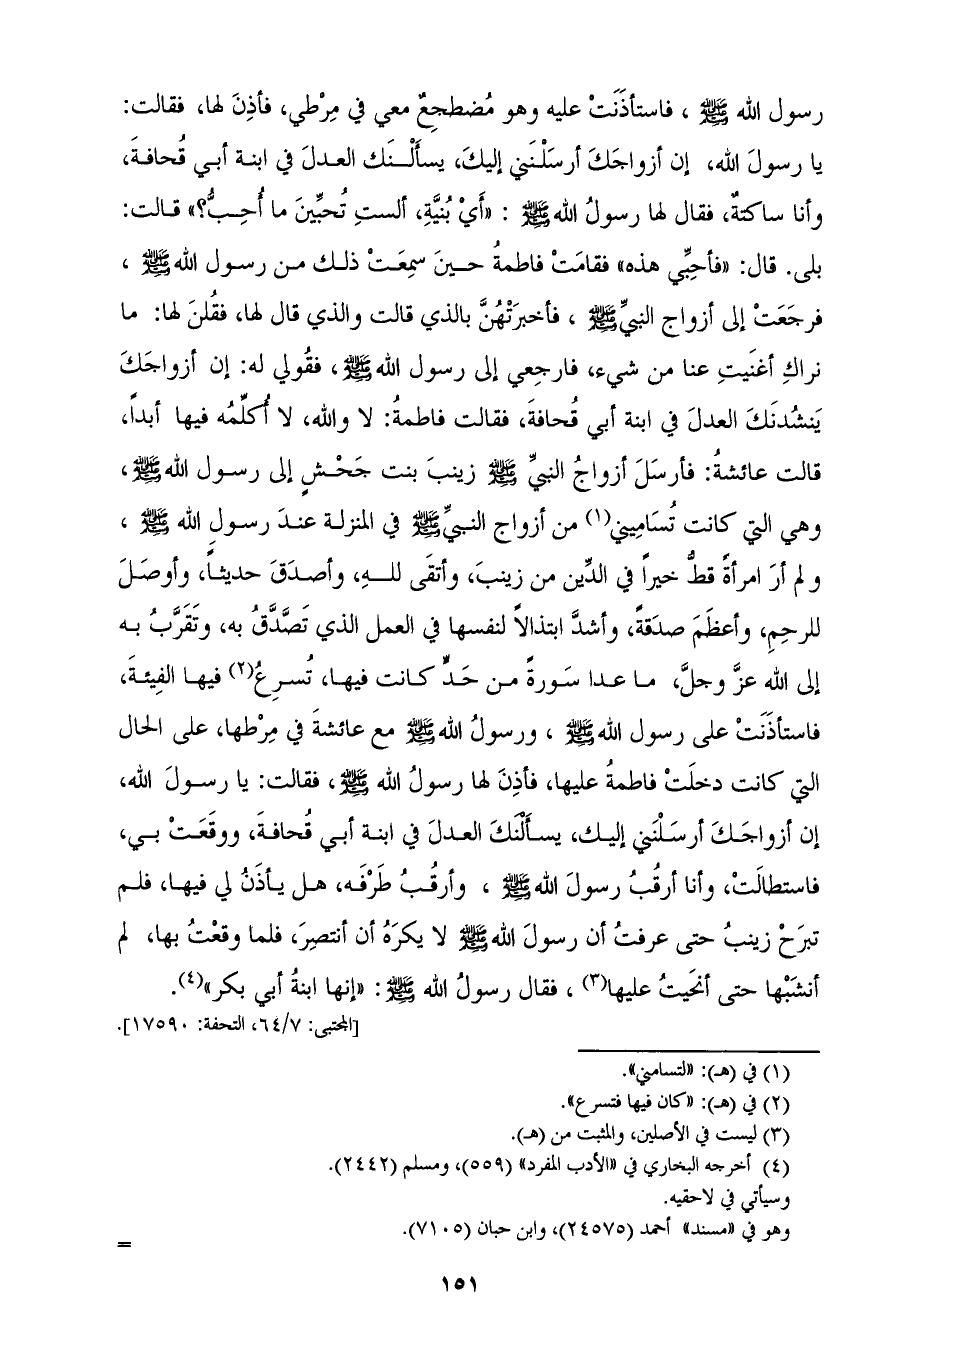 رسول الله ﷺ ، فاستأذَنَتْ عليه وهو مُضطجِعٌ معي في مِرْطي، فأذِنَ لها، فقالت:
يا رسولَ الله، إن أزواجَكَ أرسَلْنَني إليكَ، يسأَلْـنَك العدلَ في ابنة أبي قُحافةَ،
وأنا ساكتةٌ، فقال لها رسولُ الله ﷺ : «أَيْ بُنيَّةِ، ألستِ تُحبِّينَ ما أُحِـبُّ؟» قـالت:
بلى. قال: «فأحِبِّي هذه» فقامَتْ فاطمةُ حـينَ سمِعَتْ ذلـك مـن رسـول الله ﷺ ،
فرجَعَتْ إلى أزواج النبيِّ ﷺ ، فأخبرَتْهُنَّ بالذي قالت والذي قال لها، فقُلنَ لها: ما
نراكِ أغنَيتِ عنا من شيء، فارجِعي إلى رسول الله ﷺ ، فقُولي له: إن أزواجَكَ
يَنشُدنَكَ العدلَ في ابنة أبي قُحافةَ، فقالت فاطمةُ: لا والله، لا أُكلِّمُه فيها أبداً،
قالت عائشةُ: فأرسَلَ أزواجُ النبيِّ ﷺ زينبَ بنت جَحْشٍ إلى رسـول الله ﷺ ،
وهي التي كانت تُسَامِيني(١) من أزواج النـبيِّ ﷺ في المنزلـة عنـدَ رسـولِ الله ﷺ ،
و لم أرَ امرأةً قطُّ خيراً في الدِّين من زينبَ، وأتقَى للـهِ، وأصـدَقَ حديثـاً، وأوصَـلَ
للرحِمِ، وأعظَمَ صدَقةً، وأشدَّ ابتذالاً لنفسها في العمل الذي تَصَدَّقُ به، وتَقَرَّبُ بـه
إلى الله عزَّ وجلَّ، مـا عـدا سَـورةً مـن حَـدٍّ كـانت فيهـا، تُسـرِعُ(٢) فيهـا الفِيئـةَ،
فاستأذَنَتْ على رسول الله ﷺ ، ورسولُ الله ﷺ مع عائشةَ في مِرْطها، على الحال
التي كانت دخلَتْ فاطمةُ عليها، فأذِنَ لها رسولُ الله ﷺ ، فقالت: يا رسـولَ الله،
إن أزواجَـكَ أرسَـلْنَني إليـك، يسـأَلْنَكَ العـدلَ في ابنـة أبـي قُحافـةَ، ووقَعَـتْ بـي،
فاستطالَتْ، وأنا أرقُبُ رسولَ الله ﷺ ، وأرقُـبُ طَرْفَـه، هـل يـأذَنُ لي فيهـا، فلـم
تبرَحْ زينبُ حتى عرفتُ أن رسولَ الله ﷺ لا يكرَهُ أن أنتصِرَ، فلما وقعْتُ بها، لم
أنشَبْها حتى أنحَيتُ عليها(٣) ، فقال رسولُ الله ﷺ : «إنها ابنةُ أبي بكر»(٤).
[المجتبى: ٦٤/٧، التحفة: ١٧٥٩٠].
(١) في (هـ): «لتسامني».
(٢) في (هـ): «كان فيها فتسرع».
(٣) ليست في الأصلين، والمثبت من (هـ).
(٤) أخرجه البخاري في «الأدب المفرد» (٥٥٩)، ومسلم (٢٤٤٢).
وسيأتي في لاحقيه.
وهو في «مسند» أحمد (٢٤٥٧٥)، وابن حبان (٧١٠٥).
=
١٥١